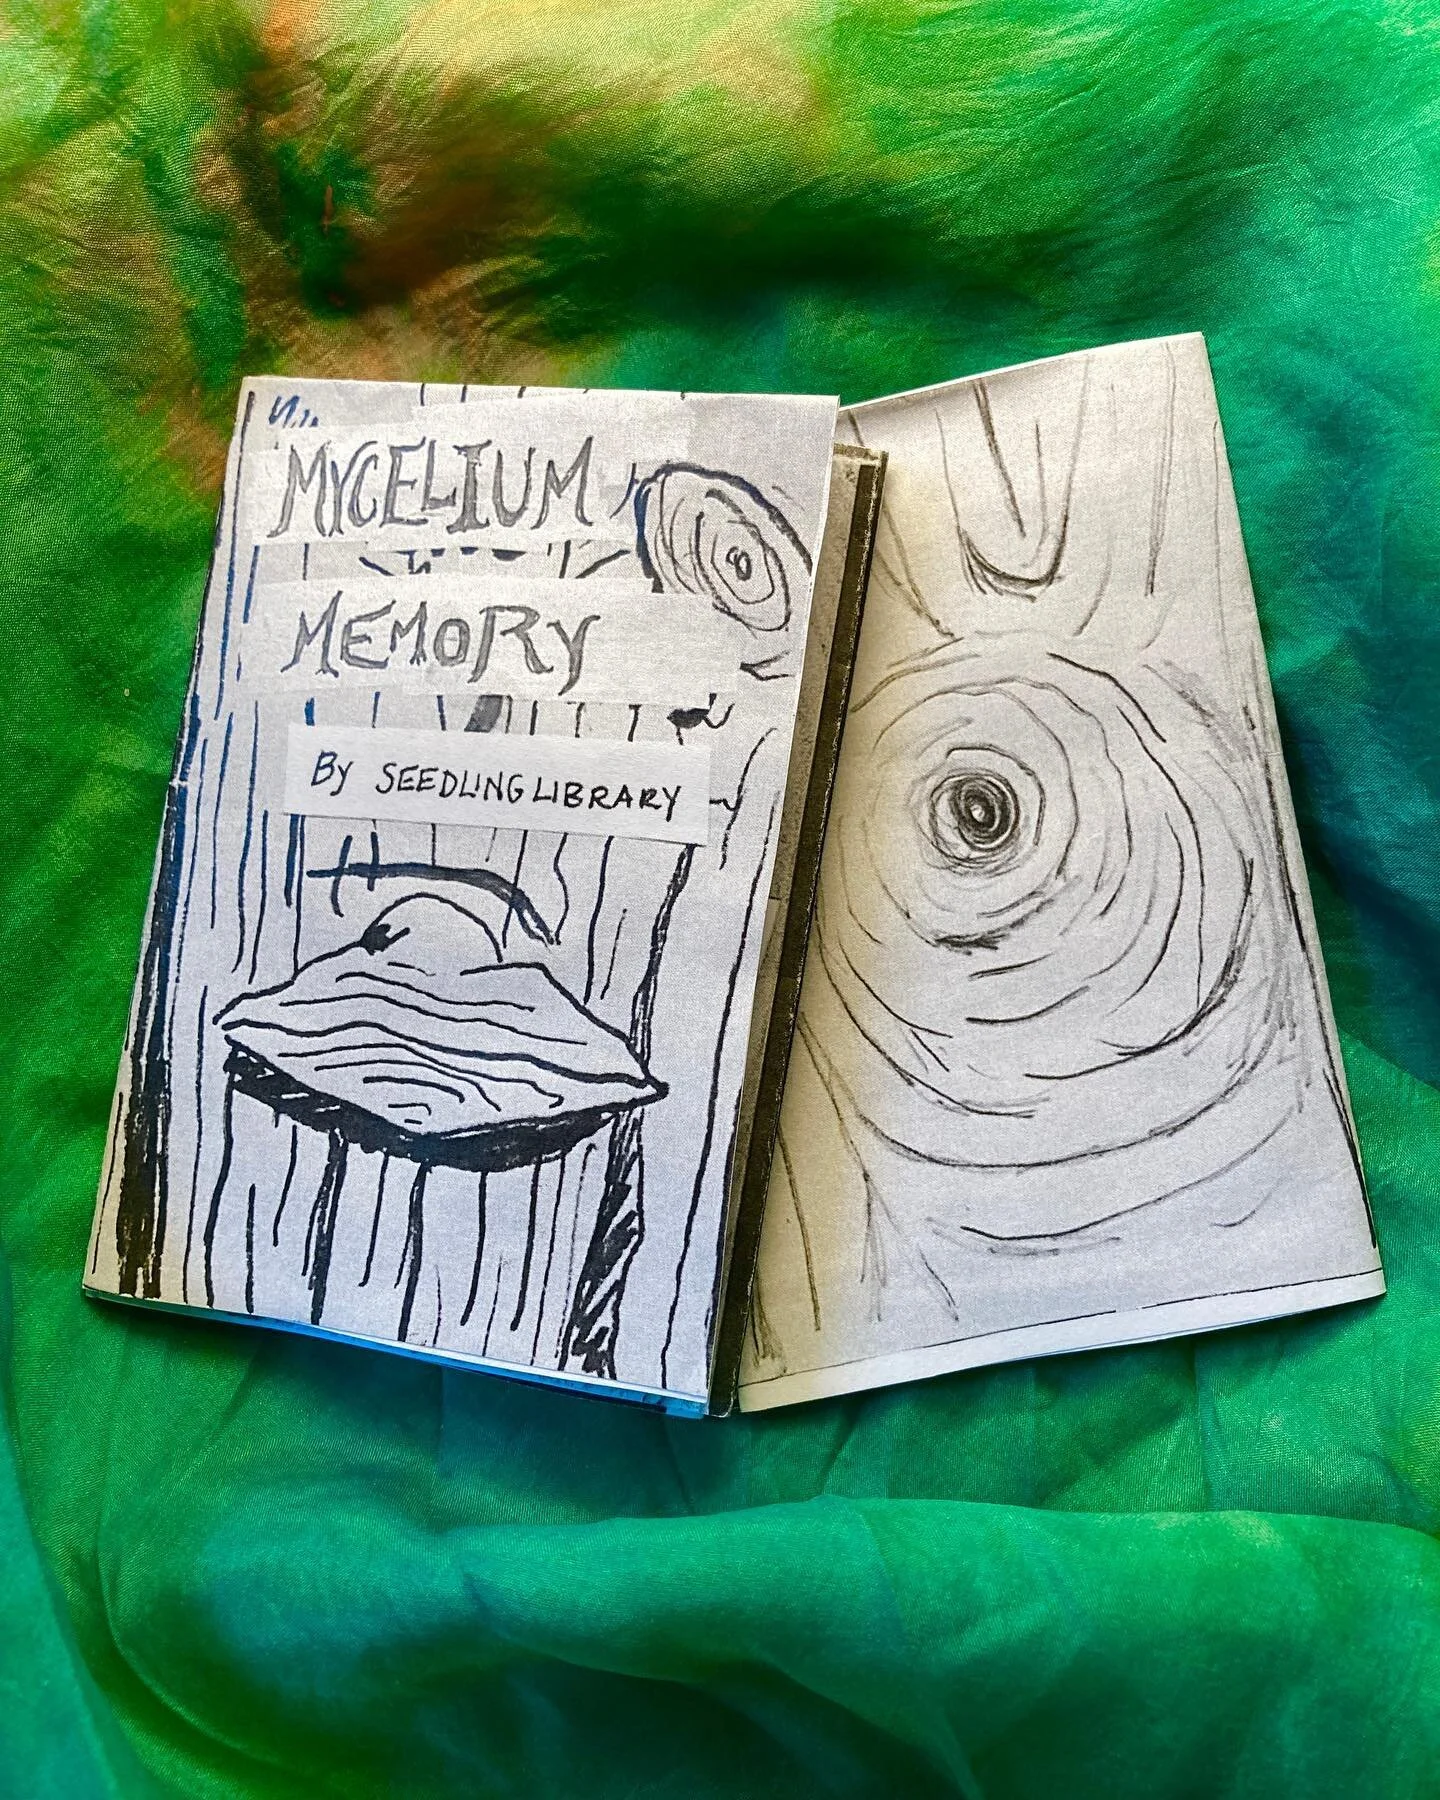 MYCELIUM
MEMORY
By SEEDLING LIBRARY